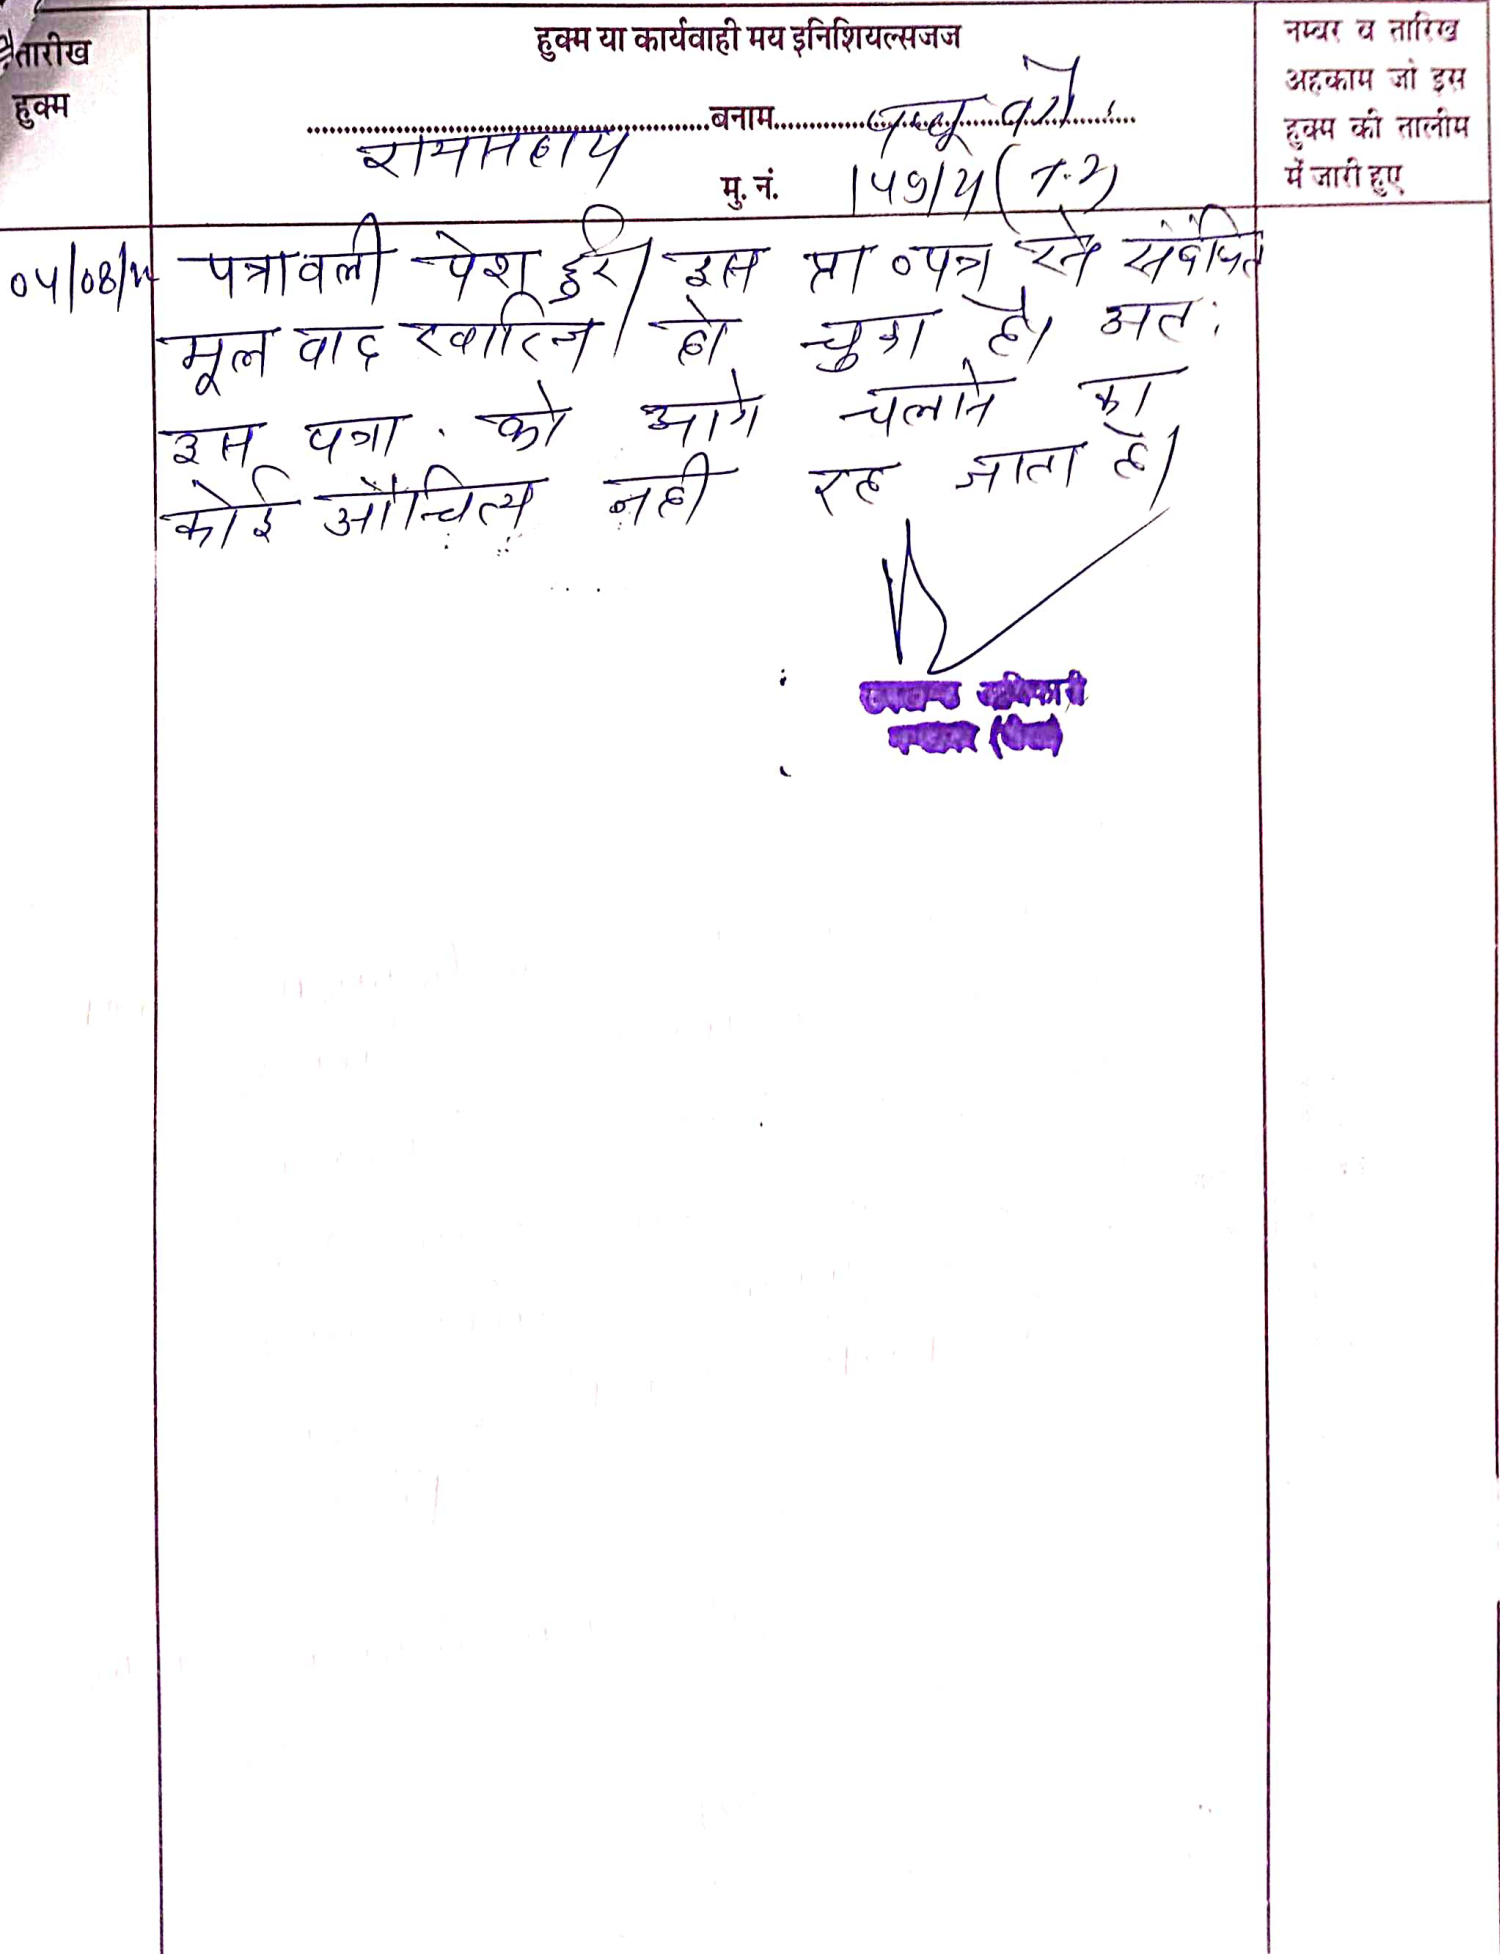 तारीख
हुक्म
हुक्म या कार्यवाही मय इनिशियल्सजज
बनाम
रामसहाय
मु. नं.
नम्बर व तारिख
अहकाम जो इस
हुक्म की तालीम
में जारी हुए
पत्रावली पेश हुई। इस प्रा०पत्र से संबंधित
मूल वाद खारिज हो चुका है। अतः
इस पत्रा. को आगे चलाने का
कोई औचित्य नही रह जाता है।
उपखण्ड अधिकारी